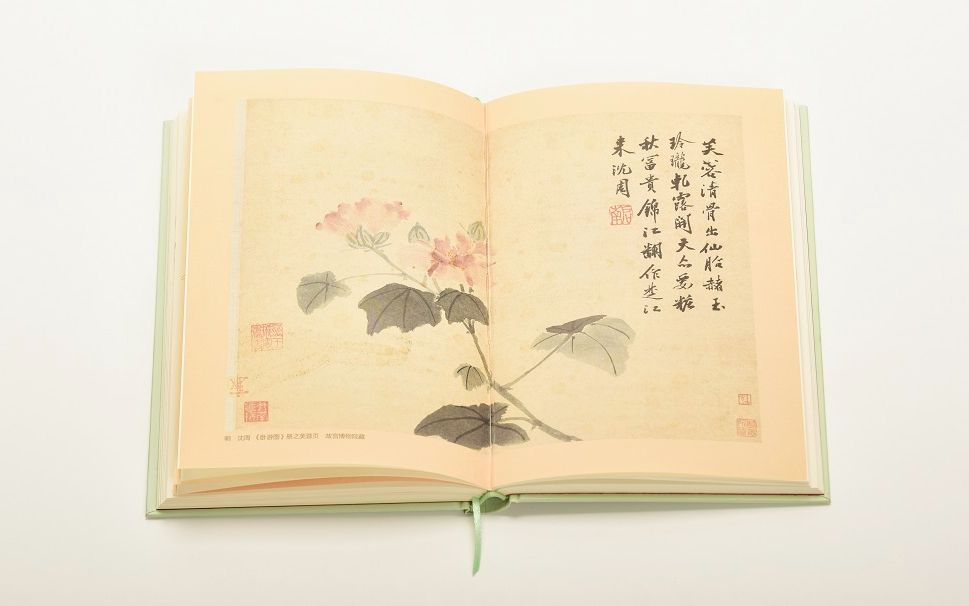 芙蓉清骨出仙胎赭玉
玲瓏軋露開天亦要粧
秋富貴錦江翻作楚江
来沈周
明 沈周 《卧游图》册之芙蓉页 故宫博物院藏